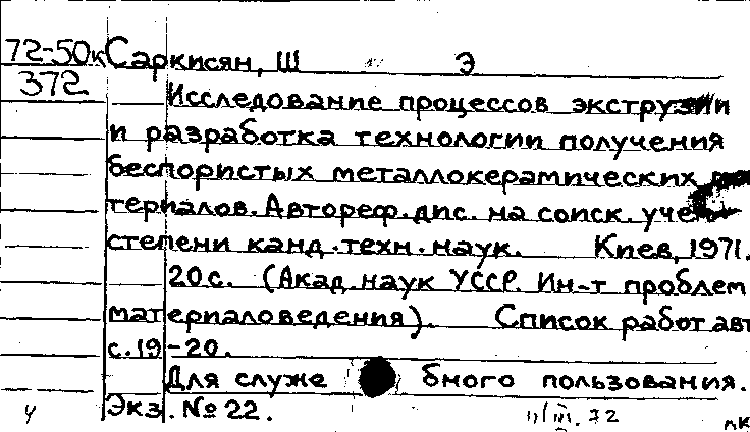 72-50к Саркисян, Ш Э
372
Исследование процессов экструзии
и разработка технологии получения
беспористых металлокерамических ма
териалов. Автореф. дис. на соиск. учен
степени канд. техн. наук. Киев, 1971.
20 с. (Акад. наук УССР. Ин-т проблем
материаловедения). Список работ авт
с. 19-20.
Для служебного пользования.
Экз. № 22.